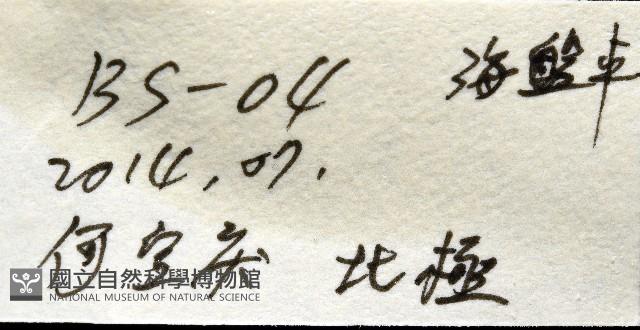 BS-04 海盤車
2014.07.
何宜慶 北極
國立自然科學博物館
NATIONAL MUSEUM OF NATURAL SCIENCE